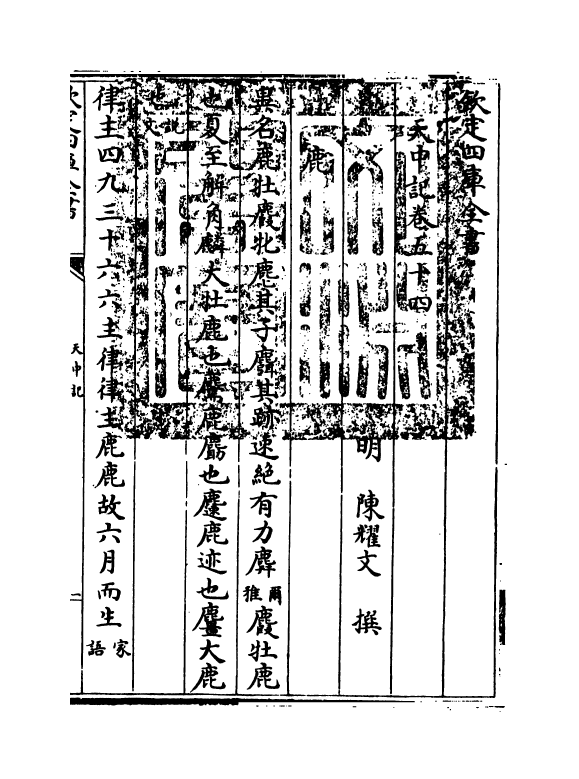 欽定四庫全書
天中記卷五十四
明 陳耀文 撰
鹿
異名鹿牡麚牝麀其子麛其跡速絕有力䴥爾雅麚牡鹿
也夏至解角麟大牡鹿也
鹿迹也麠大鹿
也說文
律主四九三十六六主律律主鹿鹿故六月而生家語
天中記
二